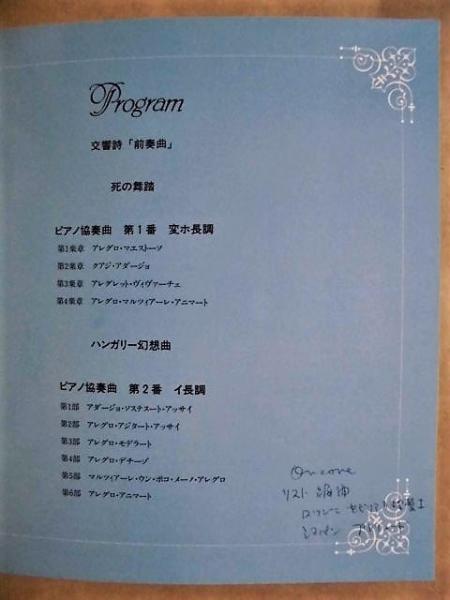 Program
交響詩「前奏曲」
死の舞踏
ピアノ協奏曲 第1番 変ホ長調
第1楽章 アレグロ・マエストーソ
第2楽章 クアジ・アダージョ
第3楽章 アレグレット・ヴィヴァーチェ
第4楽章 アレグロ・マルツィアーレ・アニマート
ハンガリー幻想曲
ピアノ協奏曲 第2番 イ長調
第1部 アダージョ・ソステヌート・アッサイ
第2部 アレグロ・アジタート・アッサイ
第3部 アレグロ・モデラート
第4部 アレグロ・デチーゾ
第5部 マルツィアーレ・ウン・ポコ・メーノ・アレグロ
第6部 アレグロ・アニマート
リスト